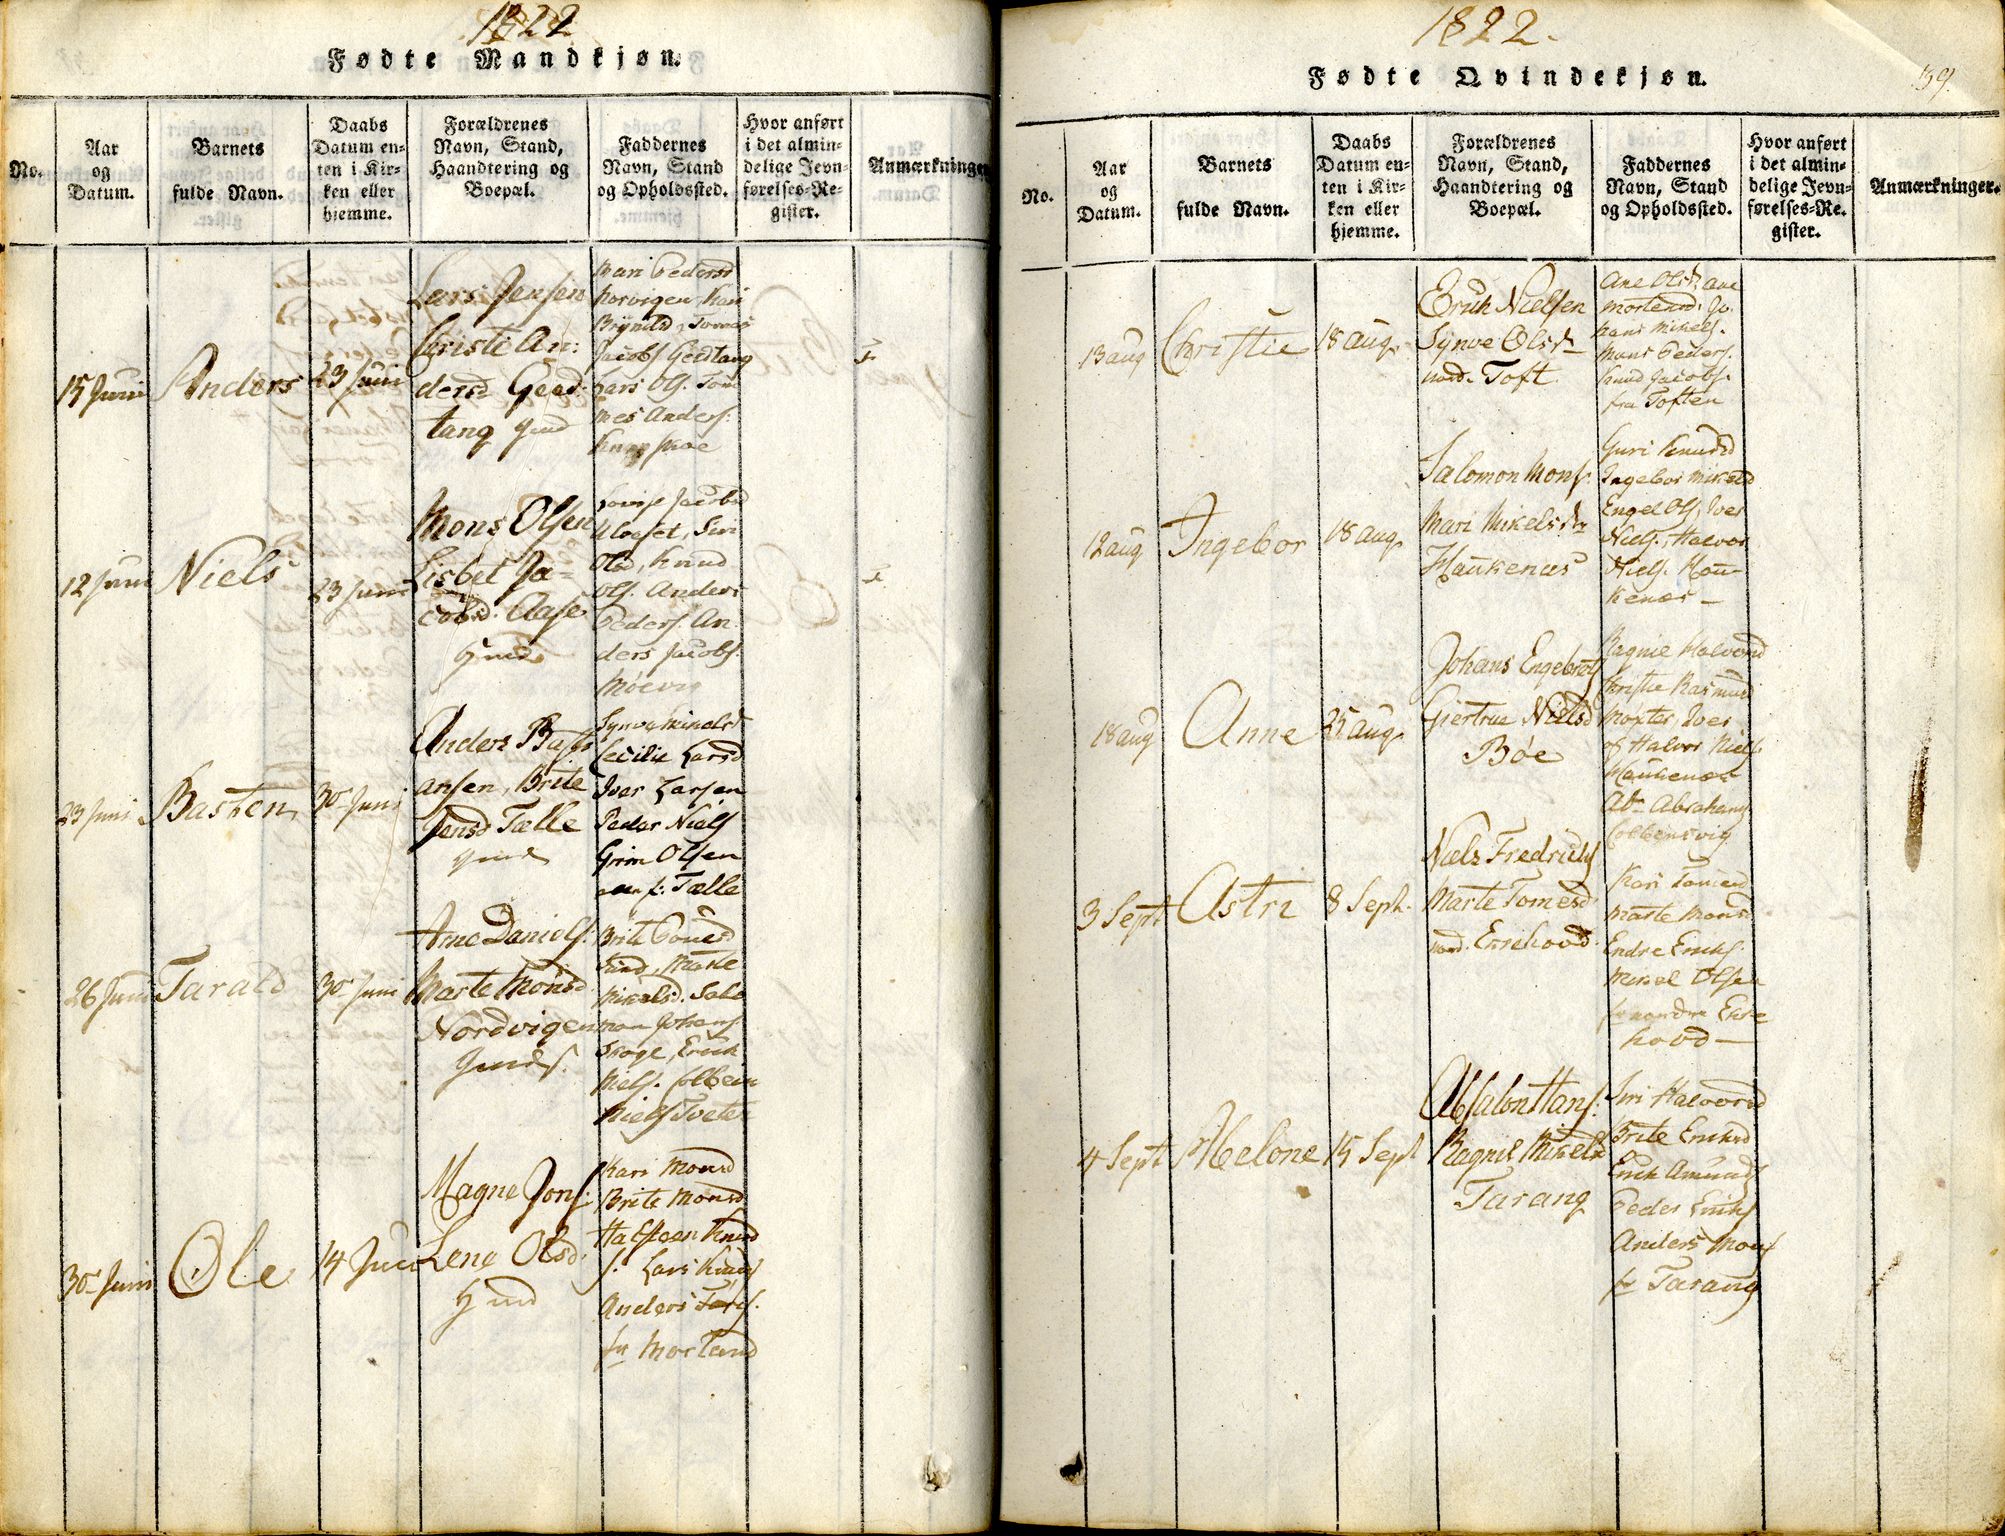 1822
Fødte Mandkjøn.
No.
Aar
og
Datum.
Barnets
fulde Navn.
Daabs
Datum en-
ten i Kir-
ken eller
hjemme.
Forældrenes
Navn, Stand,
Haandtering og
Boepæl.
Faddernes
Navn, Stand
og Opholdssted.
Hvor anført
i det almin-
delige Jevn-
førelses-Re-
gister.
Anmærkninger
15 Juni
Anders
23 Juni
Lars Jensen
Christi An:
dersd Geed:
tang
Mari Pedersd
Korvigen, Kari
Jacobs Geedtang
Lars Ols. Tom
mes Anders.
12 Juni
Niels
23 Juni
Mons Olsen
Lisbet Ja-
cobsd. Aase
Olsd, Knud
Ols. Anders
Peders. An
ders Jacobs.
Møevig
23 Juni
Basten
30 Juni
Anders Bast
ansen, Brite
Jensd Tælle
Synve Mikelsd
Cecilie Larsd
Iver Larsen
Peder Niels
Grim Olsen
Tælle
26 Juni
Tarald
30 Juni
Arne Daniels.
Marte Monsd
Nordvigen
Brite Povelsd
Sund, Marte
Mikelsd. Salo
mon Johans.
Skoge, Erich
Niels. Colbein
Niels Tveter
30 Juni
Ole
14 Juli
Magne Jons.
Lene Olsd.
Kari Monsd
Brite Monsd
Halsteen Knud
s. Lars Knuds
Anders
fr Morland
1822.
Fødte Qvindekjøn.
39.
No.
Aar
og
Datum.
Barnets
fulde Navn.
Daabs
Datum en-
ten i Kir-
ken eller
hjemme.
Forældrenes
Navn, Stand,
Haandtering og
Boepæl.
Faddernes
Navn, Stand
og Opholdssted.
Hvor anført
i det almin-
delige Jevn-
førelses-Re-
gister.
Anmærkninger.
13 aug
Christie
18 aug.
Erich Nielsen
Synve Olsdr
Toft
Ane Olsdr, ane
Mortensd. Jo
hans Mikels.
Mons Peders.
Knud Jacobs.
fra Toften
12 aug
Ingebor
18 aug.
Salomon Mons.
Mari Mikelsdr
Haukenæs
Guri Knudsd
Ingebor Mikelsd
Engel Ols, Iver
Niels, Halvor
Niels. Hou-
kenæs –
18 aug
Anne
25 aug.
Johans Engebrets
Giertrue Nielsd
Bøe
Ragnil Halvorsd
Christie Rasmusd
Moxter, Iver
og Halvor Niels.
Haukenæs
Abr. Abrahams
Colbensvig
3 Sept
Astri
8 Sept.
Niels Fredrichs
Marte Tomesd.
Kari Tomesd
Marte Monsd
Endre Erichs.
Mikel Olsen
hovd –
4 Sept
Abelone
15 Sept
Absalon Hans.
Ragnil Mikelsd
Tarang
Siri Halvorsd
Brite Erichsd
Erich Amunds
Peder Erichs
Anders Mons
fr Tarang